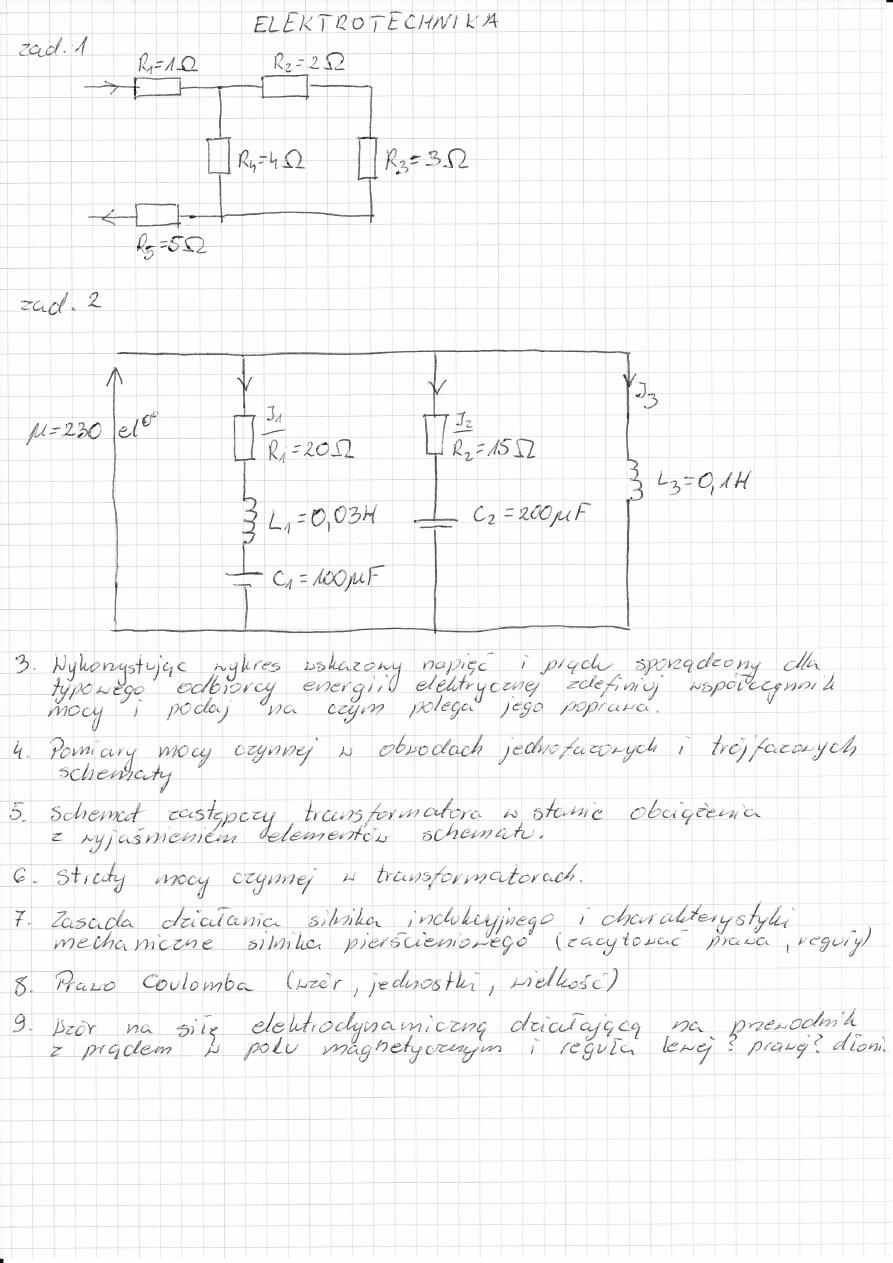 ELEKTROTECHNIKA
zad. 1
R1=1Ω
R2=2Ω
R4=4Ω
R3=3Ω
R5=5Ω
zad. 2
μ=230 e^j0°
J1
R1=20Ω
L1=0,03H
C1=100μF
J2
R2=15Ω
C2=200μF
J3
L3=0,1H
3. Wykorzystując wykres wskazowy napięć i prądu sporządzony dla
typowego odbiorcy energii elektrycznej zdefiniuj współczynnik
mocy i podaj na czym polega jego poprawa.
4. Pomiary mocy czynnej w obwodach jednofazowych i trójfazowych
schematy
5. Schemat zastępczy transformatora w stanie obciążenia
z wyjaśnieniem elementów schematu.
6. Straty mocy czynnej w transformatorach.
7. Zasada działania silnika indukcyjnego i charakterystyki
mechaniczne silnika pierścieniowego (zacytować prawa, reguły)
8. Prawo Coulomba (wzór, jednostki, wielkość)
9. Wzór na siłę elektrodynamiczną działającą na przewodnik
z prądem w polu magnetycznym i reguła lewej? prawej? dłoni.